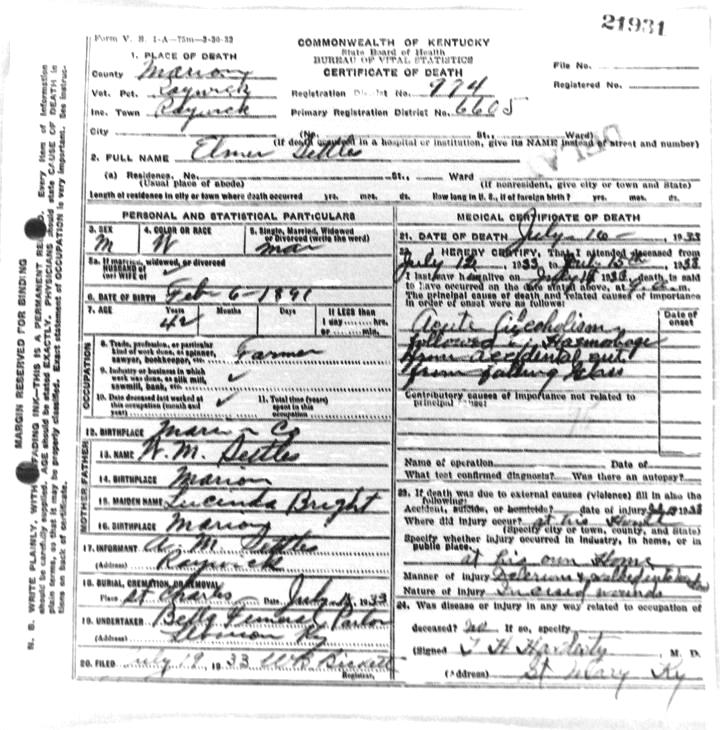 21931
Form V. S. 1-A-75m-3-30-32
COMMONWEALTH OF KENTUCKY
State Board of Health
BUREAU OF VITAL STATISTICS
CERTIFICATE OF DEATH
File No.
Registered No.
1. PLACE OF DEATH
County Marion
Vot. Pct. Raywick
Inc. Town Raywick
Registration District No. 974
Primary Registration District No. 6605
City (No. St., Ward)
(If death occurred in a hospital or institution, give its NAME instead of street and number)
2. FULL NAME Elmer Settles
(a) Residence. No. St., Ward
(Usual place of abode) (If nonresident, give city or town and State)
Length of residence in city or town where death occurred yrs. mos. ds. How long in U. S., if of foreign birth? yrs. mos. ds.
PERSONAL AND STATISTICAL PARTICULARS
3. SEX M
4. COLOR OR RACE W
5. Single, Married, Widowed or Divorced (write the word) Mar
5a. If married, widowed, or divorced
HUSBAND of
(or) WIFE of
6. DATE OF BIRTH Feb 6-1891
7. AGE Years 42 Months Days If LESS than 1 day hrs. or min.
OCCUPATION
8. Trade, profession, or particular kind of work done, as spinner, sawyer, bookkeeper, etc. Farmer
9. Industry or business in which work was done, as silk mill, sawmill, bank, etc.
10. Date deceased last worked at this occupation (month and year)
11. Total time (years) spent in this occupation
12. BIRTHPLACE Marion Co
MOTHER FATHER
13. NAME W. M. Settles
14. BIRTHPLACE Marion
15. MAIDEN NAME Lucinda Bright
16. BIRTHPLACE Marion
17. INFORMANT M. Settles
(Address) Raywick
18. BURIAL, CREMATION, OR REMOVAL
Place St Charles Date July 1933
19. UNDERTAKER Funeral Parlor
(Address) Lebanon Ky
20. FILED July 19, 1933
Registrar.
MEDICAL CERTIFICATE OF DEATH
21. DATE OF DEATH July-16-, 1933
22. I HEREBY CERTIFY, That I attended deceased from
July 12, 1933 to July 15th, 1933
I last saw h alive on July 1933, death is said
to have occurred on the date stated above, at m.
The principal cause of death and related causes of importance
in order of onset were as follows:
Date of onset
Acute Alcoholism
followed by Haemorhage
from accidental cut
from falling Glass
Contributory causes of importance not related to
principal cause:
Name of operation Date of
What test confirmed diagnosis? Was there an autopsy?
23. If death was due to external causes (violence) fill in also the
following:
Accident, suicide, or homicide? date of injury July 1933
Where did injury occur? at his Home
(Specify city or town, county, and State)
Specify whether injury occurred in Industry, in home, or in
public place.
at his own Home
Manner of injury Delerious & walked into window
Nature of injury Incised wounds
24. Was disease or injury in any way related to occupation of
deceased? no If so, specify
(Signed) T H Hardesty, M. D.
(Address) St Mary Ky
MARGIN RESERVED FOR BINDING
N. B. WRITE PLAINLY, WITH UNFADING INK—THIS IS A PERMANENT RECORD. Every item of information
should be carefully supplied. AGE should be stated EXACTLY. PHYSICIANS should state CAUSE OF DEATH in
plain terms, so that it may be properly classified. Exact statement of OCCUPATION is very important. See instruc-
tions on back of certificate.